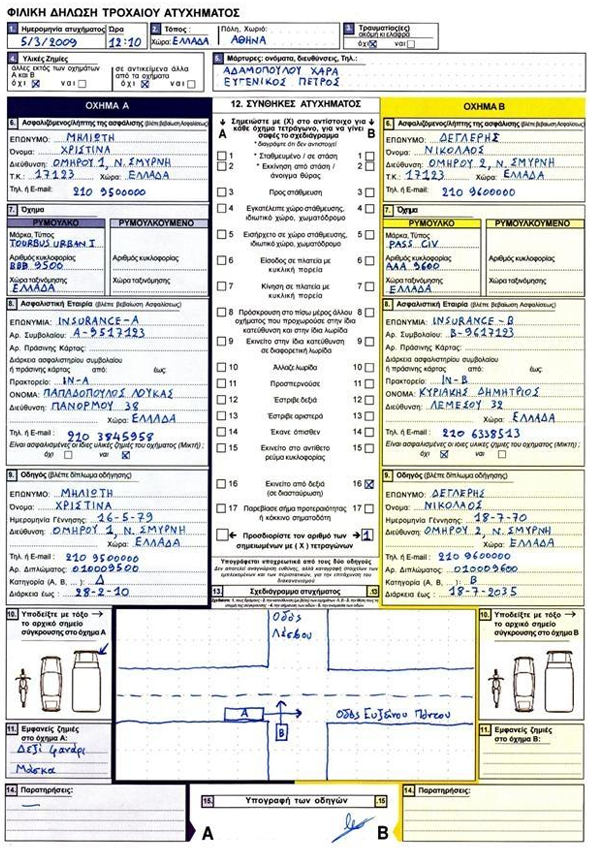 ΦΙΛΙΚΗ ΔΗΛΩΣΗ ΤΡΟΧΑΙΟΥ ΑΤΥΧΗΜΑΤΟΣ
1. Ημερομηνία ατυχήματος Ώρα
5/3/2009 12:10
2. Τόπος: Πόλη, Χωριό:
Χώρα: ΕΛΛΑΔΑ ΑΘΗΝΑ
3. Τραυματίας(ες)
ακόμη κι ελαφρά
όχι ναι
4. Υλικές Ζημίες
άλλες εκτός των οχημάτων Α και Β
όχι ναι
σε αντικείμενα άλλα από τα οχήματα
όχι ναι
5. Μάρτυρες: ονόματα, διευθύνσεις, Τηλ.:
ΑΔΑΜΟΠΟΥΛΟΥ ΧΑΡΑ
ΕΥΓΕΝΙΚΟΣ ΠΕΤΡΟΣ
ΟΧΗΜΑ Α
6. Ασφαλιζόμενος/λήπτης της ασφάλισης (βλέπε βεβαίωση Ασφαλίσεως)
ΕΠΩΝΥΜΟ: ΜΗΛΙΩΤΗ
Όνομα: ΧΡΙΣΤΙΝΑ
Διεύθυνση: ΟΜΗΡΟΥ 1, Ν. ΣΜΥΡΝΗ
Τ.Κ.: 17123 Χώρα: ΕΛΛΑΔΑ
Τηλ. ή E-mail: 210 9500000
7. Όχημα
ΡΥΜΟΥΛΚΟ ΡΥΜΟΥΛΚΟΥΜΕΝΟ
Μάρκα, Τύπος
TOURBUS URBAN I
Αριθμός κυκλοφορίας Αριθμός κυκλοφορίας
BBB 9500
Χώρα ταξινόμησης Χώρα ταξινόμησης
ΕΛΛΑΔΑ
8. Ασφαλιστική Εταιρία (βλέπε βεβαίωση Ασφαλίσεως)
ΕΠΩΝΥΜΙΑ: INSURANCE-A
Αρ. Συμβολαίου: A-9517123
Αρ. Πράσινης Κάρτας:
Διάρκεια ασφαλιστηρίου συμβολαίου
ή πράσινης κάρτας από: έως:
Πρακτορείο: IN-A
ΟΝΟΜΑ: ΠΑΠΑΔΟΠΟΥΛΟΣ ΛΟΥΚΑΣ
Διεύθυνση: ΠΑΝΟΡΜΟΥ 38
Χώρα: ΕΛΛΑΔΑ
Τηλ. ή E-mail: 210 3845958
Είναι ασφαλισμένες οι ίδιες υλικές ζημιές του οχήματος (Μικτή);
όχι ναι
9. Οδηγός (βλέπε δίπλωμα οδήγησης)
ΕΠΩΝΥΜΟ: ΜΗΛΙΩΤΗ
Όνομα: ΧΡΙΣΤΙΝΑ
Ημερομηνία Γέννησης: 16-5-79
Διεύθυνση: ΟΜΗΡΟΥ 1, Ν. ΣΜΥΡΝΗ
Χώρα: ΕΛΛΑΔΑ
Τηλ. ή E-mail: 210 9500000
Αρ. Διπλώματος: 010009500
Κατηγορία (Α, Β, ...): Δ
Διάρκεια έως: 28-2-10
12. ΣΥΝΘΗΚΕΣ ΑΤΥΧΗΜΑΤΟΣ
Σημειώστε με (Χ) στο αντίστοιχο για κάθε όχημα τετράγωνο, για να γίνει σαφές το σχεδιάγραμμα
Α Β
* διαγράψτε ότι δεν αντιστοιχεί
1 * Σταθμευμένο / σε στάση 1
2 * Εκκίνηση από στάση / άνοιγμα θύρας 2
3 Προς στάθμευση 3
4 Εγκατέλειπε χώρο στάθμευσης, ιδιωτικό χώρο, χωματόδρομο 4
5 Εισήρχετο σε χώρο στάθμευσης, ιδιωτικό χώρο, χωματόδρομο 5
6 Είσοδος σε πλατεία με κυκλική πορεία 6
7 Κίνηση σε πλατεία με κυκλική πορεία 7
8 Πρόσκρουση στο πίσω μέρος άλλου οχήματος που προχωρούσε στην ίδια κατεύθυνση και στην ίδια λωρίδα 8
9 Εκινείτο στην ίδια κατεύθυνση σε διαφορετική λωρίδα 9
10 Άλλαζε λωρίδα 10
11 Προσπερνούσε 11
12 Έστριβε δεξιά 12
13 Έστριβε αριστερά 13
14 Έκανε όπισθεν 14
15 Εκινείτο στο αντίθετο ρεύμα κυκλοφορίας 15
16 Εκινείτο από δεξιά (σε διασταύρωση) 16
17 Παρεβίασε σήμα προτεραιότητας ή κόκκινο σηματοδότη 17
Προσδιορίστε τον αριθμό των σημειωμένων με ( Χ ) τετραγώνων 1
Υπογράφεται υποχρεωτικά από τους δύο οδηγούς
13. Σχεδιάγραμμα ατυχήματος .13
ΟΧΗΜΑ Β
6. Ασφαλιζόμενος/λήπτης της ασφάλισης (βλέπε βεβαίωση Ασφαλίσεως)
ΕΠΩΝΥΜΟ: ΔΕΓΛΕΡΗΣ
Όνομα: ΝΙΚΟΛΑΟΣ
Διεύθυνση: ΟΜΗΡΟΥ 2, Ν. ΣΜΥΡΝΗ
Τ.Κ.: 17123 Χώρα: ΕΛΛΑΔΑ
Τηλ. ή E-mail: 210 9600000
7. Όχημα
ΡΥΜΟΥΛΚΟ ΡΥΜΟΥΛΚΟΥΜΕΝΟ
Μάρκα, Τύπος
PASS CIV
Αριθμός κυκλοφορίας Αριθμός κυκλοφορίας
AAA 9600
Χώρα ταξινόμησης Χώρα ταξινόμησης
ΕΛΛΑΔΑ
8. Ασφαλιστική Εταιρία (βλέπε βεβαίωση Ασφαλίσεως)
ΕΠΩΝΥΜΙΑ: INSURANCE-B
Αρ. Συμβολαίου: B-9617123
Αρ. Πράσινης Κάρτας:
Διάρκεια ασφαλιστηρίου συμβολαίου
ή πράσινης κάρτας από: έως:
Πρακτορείο: IN-B
ΟΝΟΜΑ: ΚΥΡΙΑΚΗΣ ΔΗΜΗΤΡΙΟΣ
Διεύθυνση: ΛΕΜΕΣΟΥ 32
Χώρα: ΕΛΛΑΔΑ
Τηλ. ή E-mail: 210 6338513
Είναι ασφαλισμένες οι ίδιες υλικές ζημιές του οχήματος (Μικτή);
όχι ναι
9. Οδηγός (βλέπε δίπλωμα οδήγησης)
ΕΠΩΝΥΜΟ: ΔΕΓΛΕΡΗΣ
Όνομα: ΝΙΚΟΛΑΟΣ
Ημερομηνία Γέννησης: 18-7-70
Διεύθυνση: ΟΜΗΡΟΥ 2, Ν. ΣΜΥΡΝΗ
Χώρα: ΕΛΛΑΔΑ
Τηλ. ή E-mail: 210 9600000
Αρ. Διπλώματος: 010009600
Κατηγορία (Α, Β, ...): Β
Διάρκεια έως: 18-7-2035
10. Υποδείξτε με τόξο → το αρχικό σημείο σύγκρουσης στο όχημα Α
Οδός Λέσβου
Α
Β
Οδός Ευξείνου Πόντου
10. Υποδείξτε με τόξο → το αρχικό σημείο σύγκρουσης στο όχημα Β
11. Εμφανείς ζημιές στο όχημα Α:
Δεξί φανάρι
Μάσκα
11. Εμφανείς ζημιές στο όχημα Β:
14. Παρατηρήσεις:
—
15. Υπογραφή των οδηγών .15
Α Β
14. Παρατηρήσεις: